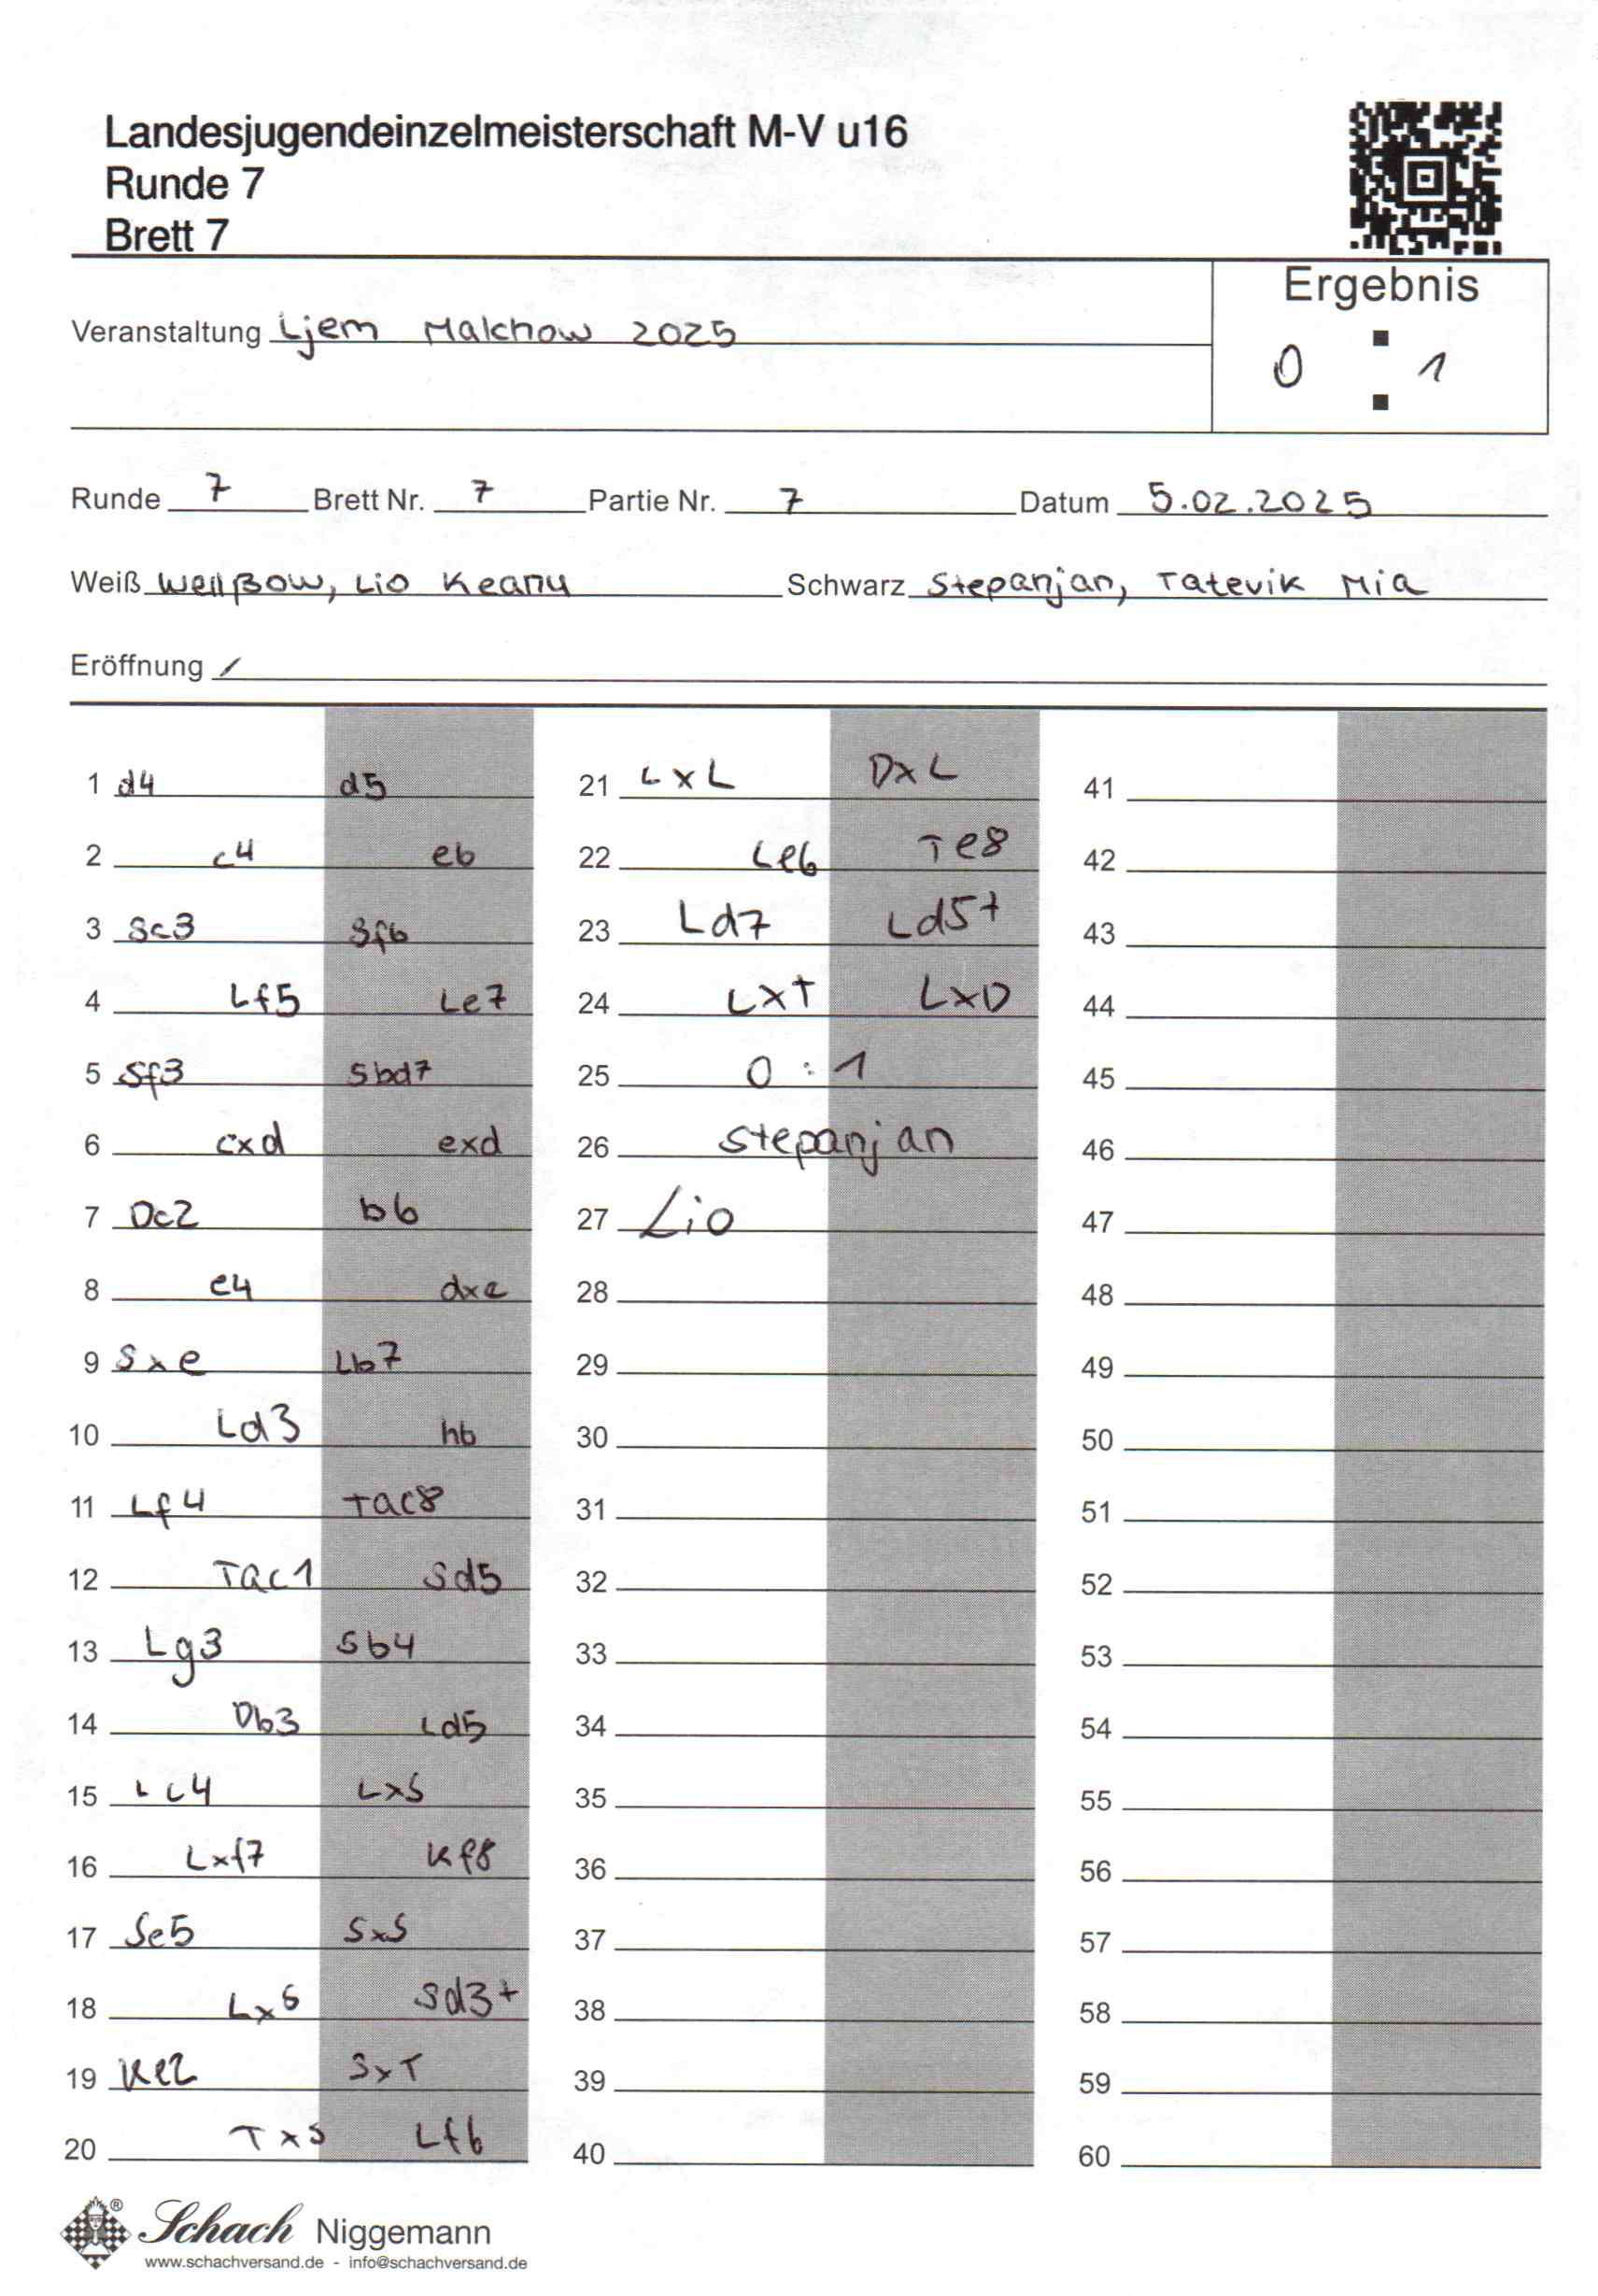 Landesjugendeinzelmeisterschaft M-V u16
Runde 7
Brett 7
Ergebnis
0 : 1
Veranstaltung Ljem Malchow 2025
Runde 7 Brett Nr. 7 Partie Nr. 7 Datum 5.02.2025
Weiß Weißow, Lio Keanu Schwarz Stepanjan, Tatevik Mia
Eröffnung /
1 d4 d5
2 c4 e6
3 Sc3 Sf6
4 Lf5 Le7
5 Sf3 Sbd7
6 cxd exd
7 Dc2 b6
8 e4 dxe
9 Sxe Lb7
10 Ld3 h6
11 Lf4 Tac8
12 Tac1 Sd5
13 Lg3 Sb4
14 Db3 Ld5
15 Lc4 LxS
16 Lxf7 Kf8
17 Se5 SxS
18 LxS Sd3+
19 Ke2 SxT
20 TxS Lf6
21 LxL DxL
22 Le6 Te8
23 Ld7 Ld5+
24 LxT LxD
25 0 : 1
26 Stepanjan
27 Lio
28
29
30
31
32
33
34
35
36
37
38
39
40
41
42
43
44
45
46
47
48
49
50
51
52
53
54
55
56
57
58
59
60
Schach Niggemann
www.schachversand.de - info@schachversand.de